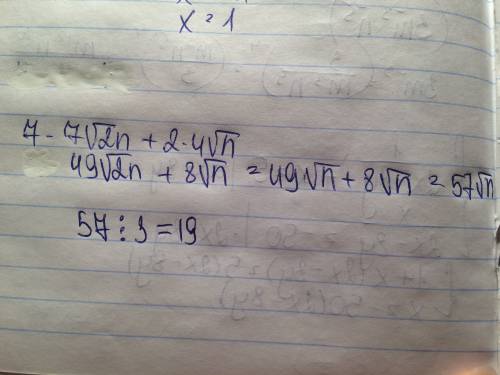 x = 1
7 - 7√2n + 2·4√n
49√2n + 8√n = 49√n + 8√n = 57√n
57 : 3 = 19